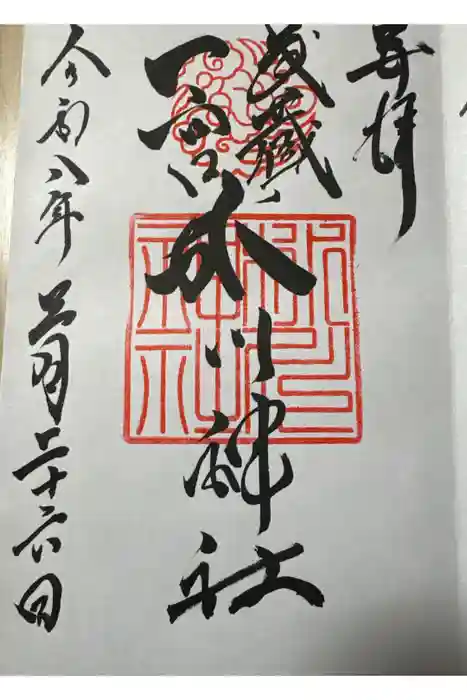 奉拝
武蔵
一宮氷川神社
令和八年三月二十六日
氷川神社